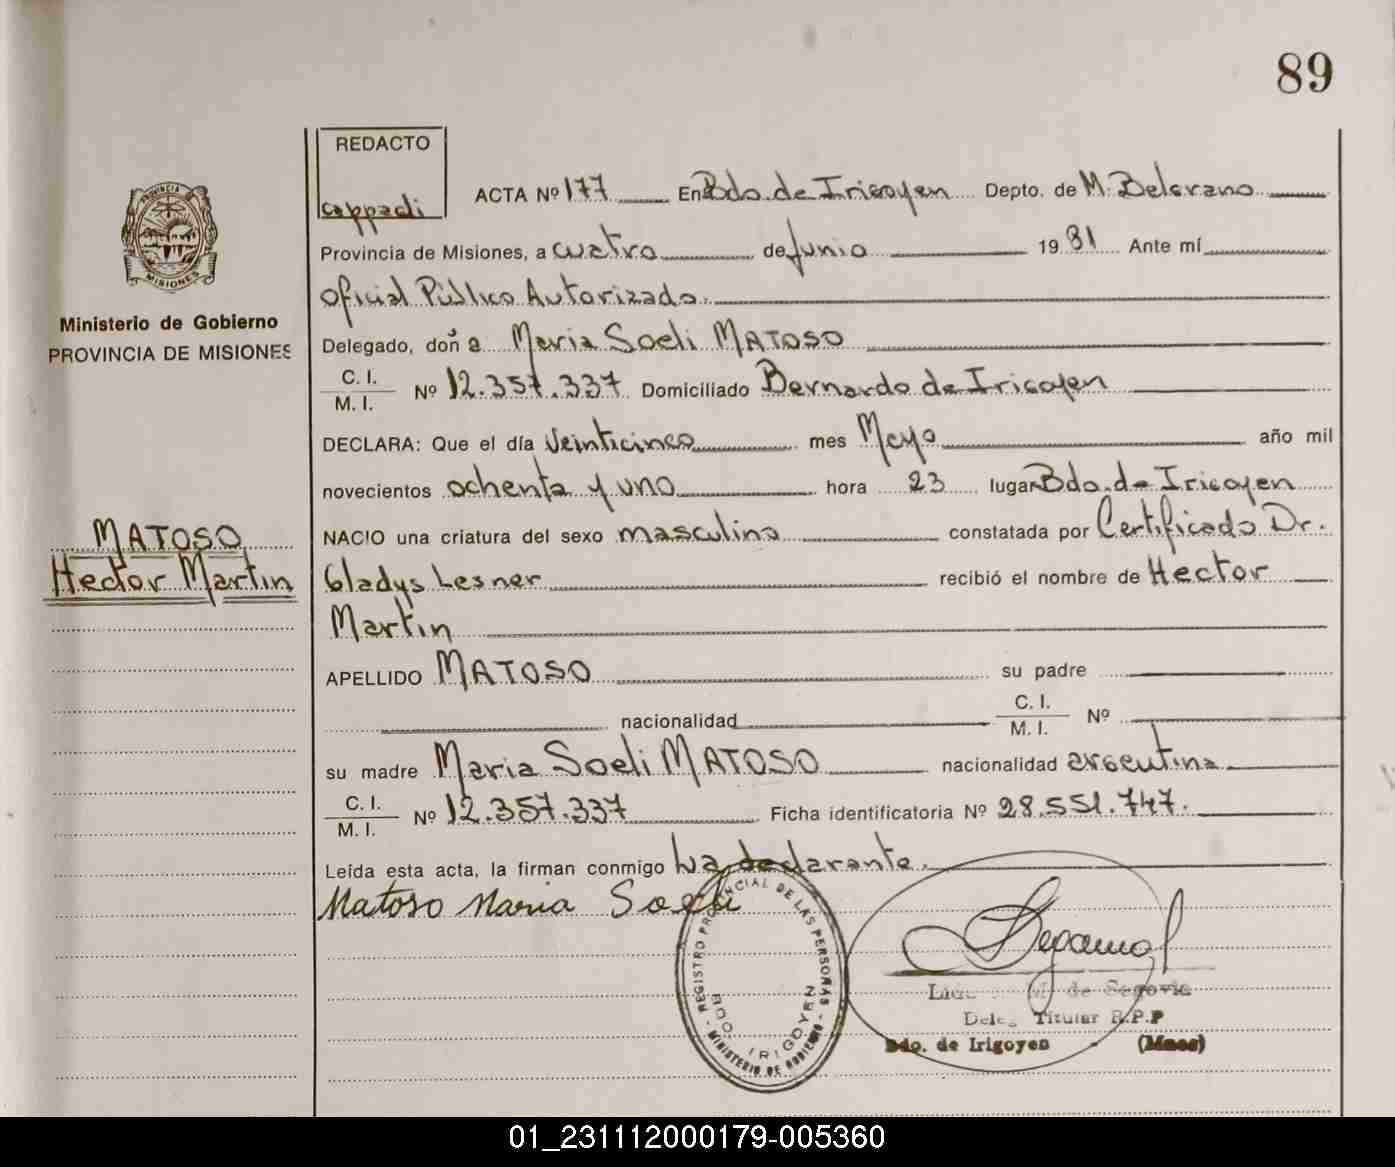 89
REDACTO
cappadi
ACTA Nº 177 En Bdo. de Irigoyen Depto. de M. Belgrano
Provincia de Misiones, a cuatro de Junio 19 81 Ante mí
Oficial Público Autorizado.
Ministerio de Gobierno
PROVINCIA DE MISIONES
Delegado, doña Maria Soeli MATOSO
C. I.
M. I. Nº 12.357.337 Domiciliado Bernardo de Irigoyen
DECLARA: Que el día Veinticinco mes Mayo año mil
novecientos ochenta y uno hora 23 lugar Bdo. de Irigoyen
NACIO una criatura del sexo masculino constatada por Certificado Dr.
MATOSO
Hector Martin
Gladys Lesner recibió el nombre de Hector
Martin
APELLIDO MATOSO su padre
nacionalidad C. I.
M. I. Nº
su madre Maria Soeli MATOSO nacionalidad argentina
C. I.
M. I. Nº 12.357.337 Ficha identificatoria Nº 28.551.747.
Leída esta acta, la firman conmigo La declarante.
Matoso Maria Soeli
REGISTRO PROVINCIAL DE LAS PERSONAS
MINISTERIO DE GOBIERNO
BDO. IRIGOYEN
PROVINCIA
MISIONES
de Segovia
Deleg Titular R.P.P
Bdo. de Irigoyen - (Mnes)
01_231112000179-005360